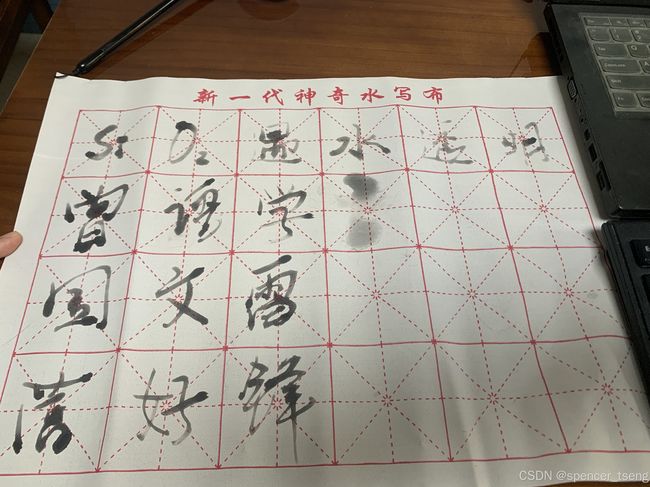 新一代神奇水写布
Si O₂ 遇 水 透 明
曾 语 学
国 文 雷
藩 好 锋
CSDN @spencer_tseng